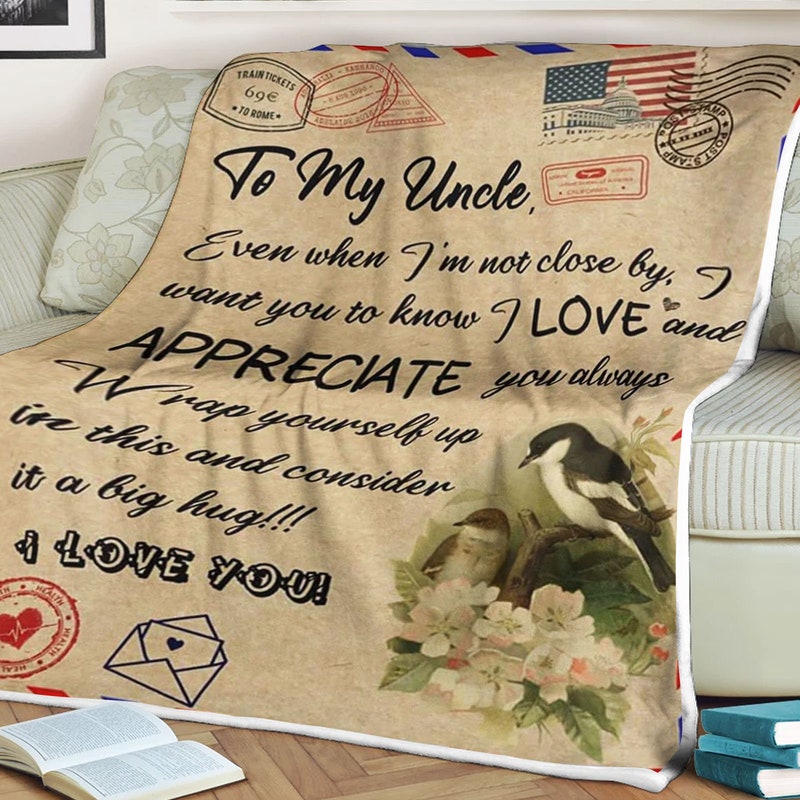 TRAIN TICKETS
69€
*TO ROME*
POST STAMP
POST STAMP
CALIFORNIA
To My Uncle,
Even when I'm not close by, I
want you to know I LOVE and
APPRECIATE you always
Wrap yourself up
in this and consider
it a big hug!!!
I LOVE YOU!
HEALTH
HEALTH
HEALTH